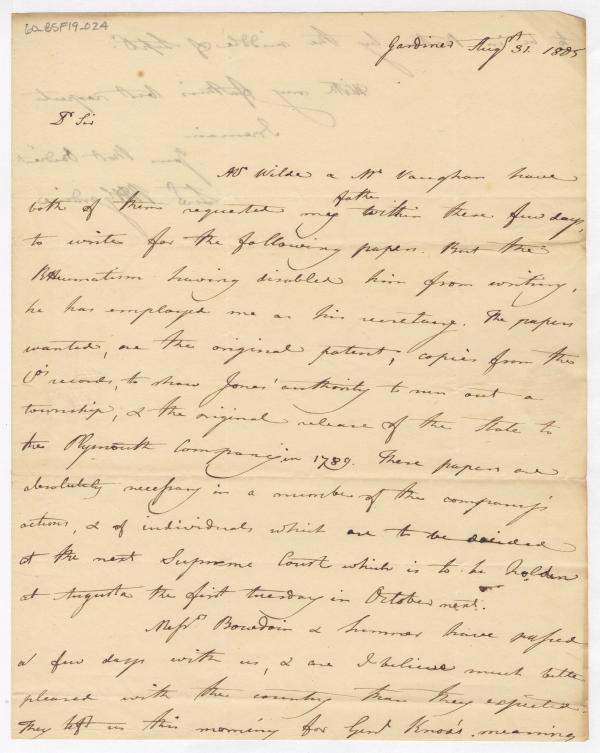 60-BSF19-024
Gardiner Augst 31. 1805
Dr Sir
Wilde & Mr Vaughan have
father
both of them requested my within these few days,
to write for the following papers. But the
Rheumatism having disabled him from writing,
he has employed me as his secretary. The papers
wanted, are the original patent, copies from the
Cos records, to shew Jones' authority to run out a
township, & the original release of the State to
the Plymouth Company in 1789. These papers are
absolutely necessary in a number of the company's
actions, & of individuals which are to be decided
at the next Supreme Court which is to be holden
at Augusta the first tuesday in October next.
Messrs Bowdoin & Sumner have passed
a few days with us, & are I believe much better
pleased with the country than they expected.
They left us this morning for Genl Knox's, meaning